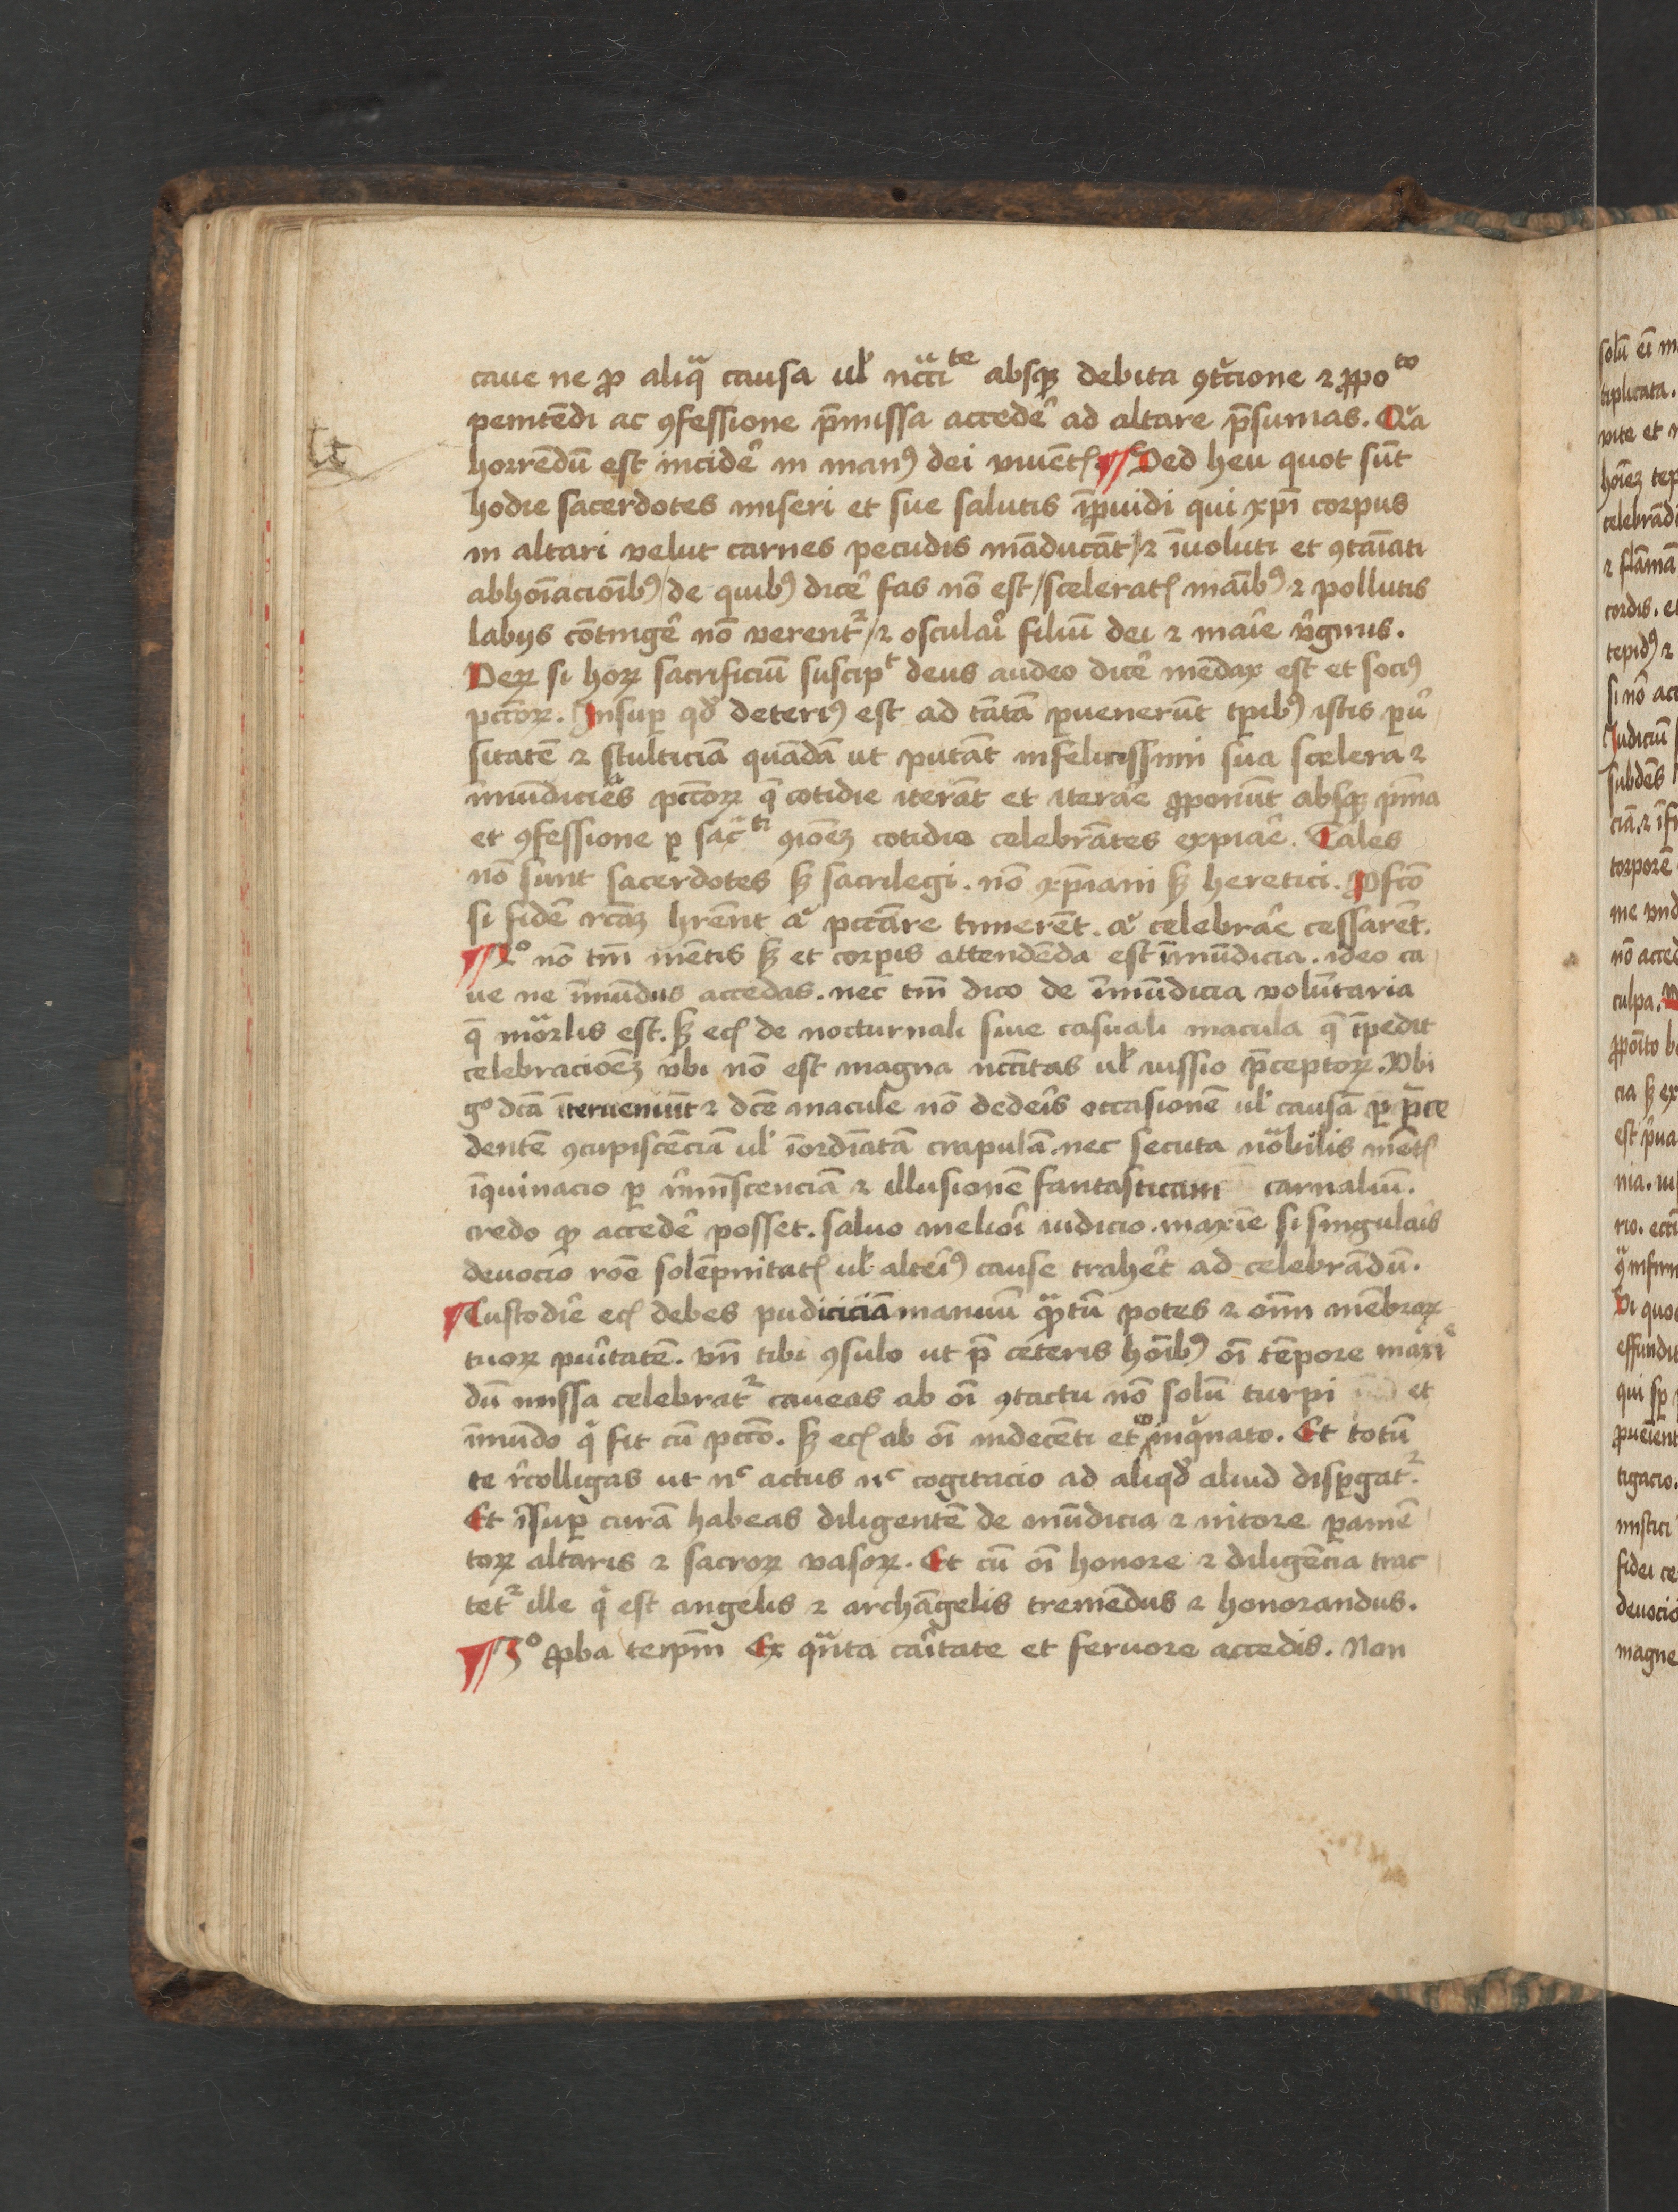 caue ne ꝓ aliqͣ causa ul̛ nc̄ci^te absqꝫ debita ꝯtͥcione ⁊ ꝓpo^to
penitēdi ac ꝯfessione p̄missa accedeͬ ad altare p̄sumas. Qꝛa
horrēdū est incideͬ in manꝰ dei viuētꝭ ¶ Sed heu quot sūt
hodie sacerdotes miseri et sue salutis īꝓuidi qui xp̄i corpus
in altari velut carnes pecudis māducāt / ⁊ īuoluti et ꝯtaīati
abhoīacioībꝰ / de quibꝰ diceͬ fas nō est / sceleratꝭ maībꝰ ⁊ pollutis
labijs cōtingeͬ nō verentᷣ / ⁊ osculaͬi filiū dei ⁊ maͬie vͥginis.
Veꝝ si hoꝝ sacrificiū suscipᵗ deus audeo diceͬ mēdax est et sociꝰ
pcc̄oꝝ. Insuꝑ qđ deteriꝰ est ad tātā ꝑuenerūt tꝑibꝰ istis ꝑuͥ
sitatē ⁊ stulticiā quādā ut putāt infelicissimi sua scelera ⁊
īmūdicies pcc̄oꝝ q̄ cotidie iterāt et iteraͬe ꝓponūt absqꝫ pn̄ia
et ꝯfessione ꝑ sacͣ^ti ꝯioēꝫ cotidie celebrātes expiaͬe. Tales
nō sunt sacerdotes sꝫ sacrilegi. nō xp̄iani sꝫ heretici. Ꝓfcō
si fidē rc̄aꝫ hrēnt aͧ pccāre timerēt. aͧ celebraͬe cessarēt.
¶ 2º nō tm̄ mētis sꝫ et corꝑis attendēda est īmūdicia. ideo ca
ue ne īmūdus accedas. nec tm̄ dico de īmūdicia volūtaria
q̄ moͬlis est. sꝫ ecꝭ de nocturnali siue casuali macula q̄ īpedit
celebracioēꝫ vbi nō est magna ncc̄itas ul̛ iussio p̄ceptoꝝ. Vbi
gº dc̄a īterueniūt ⁊ dc̄e macule nō dedeͬis occasionē ul̛ causā ꝑ p̄ce
dentē ꝯcupiscēciā ul̛ īordīatā crapulā. nec secuta noͣbilis mētꝭ
īquinacio ꝑ rͤmīscenciā ⁊ illusionē fantasticam carnaliū.
credo ꝙ accedeͬ posset. saluo melioͬi iudicio. maxīe si singulaͬis
deuocio roē solēpnitatꝭ ul̛ alteiꝰ cause traheͬt ad celebrādū.
¶ Custodiͬe ecꝭ debes pudiciciā manuū qͣꝫtū potes ⁊ oīm mēbroꝝ
tuoꝝ puͬitatē. vn̄ tibi ꝯsulo ut p̄ ceteris hoībꝰ oī tēpore maxīe
dū missa celebratᷣ caueas ab oī ꝯtactu nō solū turpi et
īmūdo qͥ fit cū pcc̄o. sꝫ ecꝭ ab oī indecēti et inqͥnato. Et totū
te rͤcolligas ut nᶜ actus nᶜ cogitacio ad aliqđ aliud disꝑgatᷣ.
Et īsuꝑ curā habeas diligentē de mūdicia ⁊ nitore ꝑamē
toꝝ altaris ⁊ sacroꝝ vasoꝝ. Et cū oī honore ⁊ diligēcia trac
tetᷣ ille qͥ est angelis ⁊ archāgelis tremēdus ⁊ honorandus.
¶ 3º ꝓba teip̄m Ex qͣnta caͬitate et feruore accedis. Non